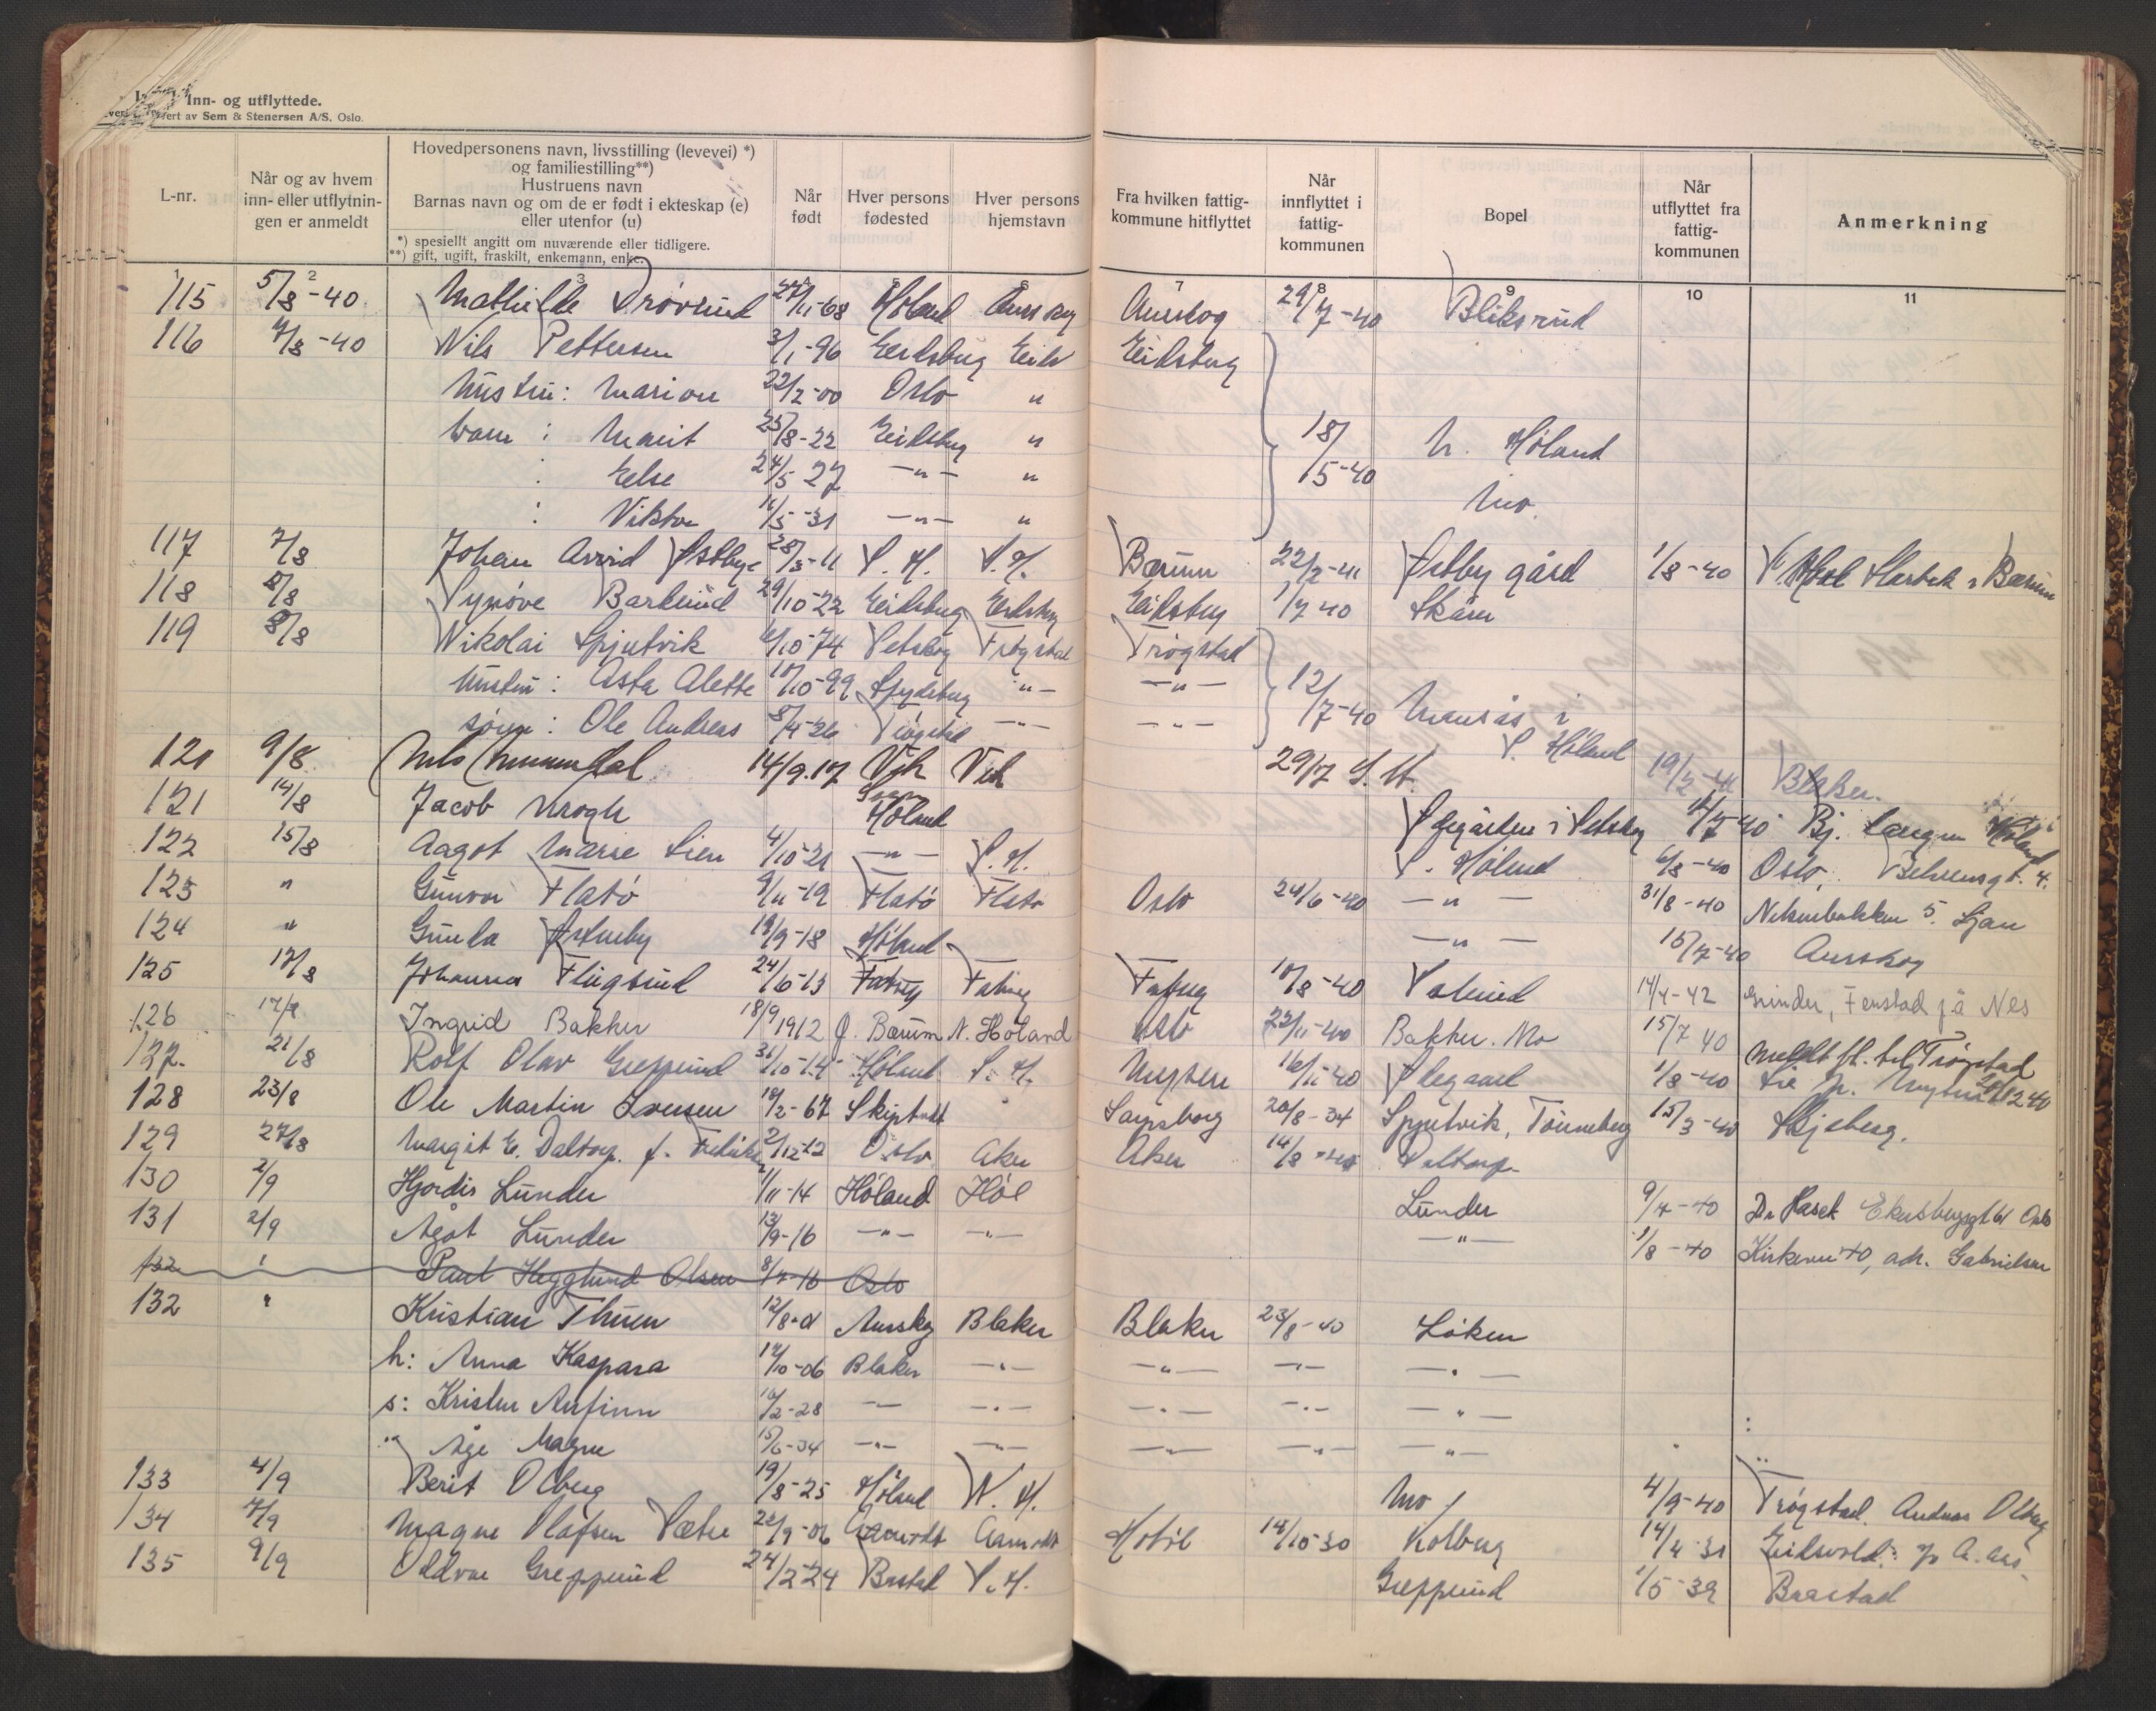 Inn- og utflyttede.
Sem & Stenersen A/S. Oslo.
L-nr.
Når og av hvem inn- eller utflytningen er anmeldt
Hovedpersonens navn, livsstilling (levevei) *)
og familiestilling**)
Hustruens navn
Barnas navn og om de er født i ekteskap (e)
eller utenfor (u)
*) spesielt angitt om nuværende eller tidligere.
**) gift, ugift, fraskilt, enkemann, enke.
Når født
Hver persons fødested
Hver persons hjemstavn
Fra hvilken fattigkommune hitflyttet
Når innflyttet i fattigkommunen
Bopel
Når utflyttet fra fattigkommunen
Anmerkning
1 2 3 7 8 9 10 11
115 5/8-40 Mathilde 27/11-68 Høland Aurskog Aurskog 29/7-40 Bliksrud
116 7/8-40 Nils Pettersen 3/1-96 Eidsberg Eids Eidsberg
hustru: Marion 22/2-00 Oslo "
barn: Marit 25/8-22 Eidsberg " 18/5-40 N. Høland
: Else 24/5 27 -"- "
: Viktor 11/5-31 -"- " Mo
117 7/8 Johan Arvid Østbye 28/3-11 S. H. S. H. Bærum 22/2-41 Østby gård 1/8-40 Bærum
118 8/8 Synøve 29/10-22 Eidsberg Eidsberg Eidsberg 1/7 40 Skåru
119 8/8 Nikolai Spjutvik 6/10-74 Setskog Trøgstad Trøgstad
hustru: Asta Alette 10/10-99 Spydeberg -"- -"- 12/7-40
sønn: Ole Andreas 8/4-26 Trøgstad -"- -"- S. Høland
120 9/8 Nils 14/9.17 Vik Vik 29/7 S. H. 19/2-41 Blaker.
121 14/8 Jacob Krogh Høland i Setskog Bj. Langen Høland
122 15/8 Aagot Marie Lien 4/10-21 -"- S. H. S. Høland 6/8-40 Oslo, Behrensgt. 4.
123 " Gunvor Flatø 9/11-19 Flatø Flatø Oslo 24/6-40 -"- 31/8-40 5. Ljan
124 " Gunda 19/9-18 Høland -"- 15/7-40 Aurskog
125 17/8 Johanna Flugsrud 24/6-13 10/8-40 14/4-42 Grinder, Fenstad på Nes
126 17/8 Ingrid Bakker 18/9 1912 Ø. Bærum N. Høland Oslo 22/11-40 Bakker. Mo 15/7 40
127. 21/8 Rolf Olav Greppurud 31/10-14 Høland S. H. Mysen 16/11-40 1/8-40
128 23/8 Ole Martin Iversen 18/2-67 Skiptvedt Sarpsborg 20/8-34 Spjutvik, Tønneberg 15/3-40 Skjeberg.
129 27/8 Margit E. Daltorp. f. 2/12-12 Oslo Aker Aker 14/8-40 Daltorp
130 2/9 Hjørdis Lunder 1/11-14 Høland Høl Lunder 9/4-40 Oslo
131 2/9 Ågot Lunder 13/9-16 -"- -"- -"- 1/8-40 Kirkevei 40, adr. Gabrielsen
132 Paul Hegglund Olsen 8/7-16 Oslo
132 " Kristian Thuen 12/8-01 Aurskog Blaker Blaker 23/8-40 Løken
h: Anna Kaspara 14/10-06 Blaker -"- -"- -"- -"-
s: Kristen Arfinn 10/2-28 -"- -"- -"- -"- -"-
" Åge Magne 15/6-34 -"- -"- -"- -"- -"-
133 4/9 Berit Olberg 19/8-25 Høland N. H. Mo 4/9-40 Trøgstad. Andreas Olberg
134 7/9 Magne Olafsen Sætre 22/9-06 Hobøl 14/10-30 Kolberg 14/4-31 Eidsvold.
135 9/9 Oddvar Greppurud 24/2-24 Båstad S. H. Greppurud 1/5-39 Baastad